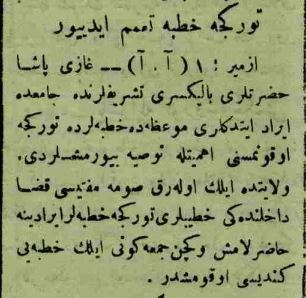 تورکجه خطبه تعمم ایدییور
ازمیر : ١ ( آ . آ ) — غازی پاشا
حضرتلری بالیکسری تشریفلرنده جامعده
ایراد ایتدکلری موعظه‌ده خطبه‌لرده تورکجه
اوقونمسنی اهمیتله توصیه بیورمشلردی.
ولایتده ایلك اوله‌رق صومه مفتیسی قضا
داخلنده‌کی خطیبلری تورکجه خطبه‌لر ایرادینه
حاضرلامش وکچن جمعه کونی ایلك خطبه‌یی
کندیسی اوقومشدر .